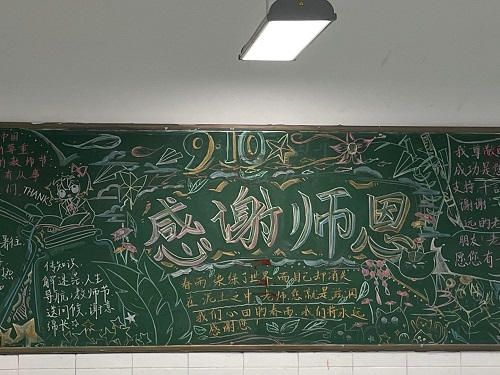 9.10
感谢师恩
中国
尊重
教师节
有从事
们
THANKS
传知识,
解迷惑,人生
导航;教师节
送问候,谢意
绵长
春雨,染绿了世界,而自己却消失
在泥土之中。老师,您就是滋润
我们心田的春雨,我们将永远
感谢您
我尊敬
成功是
支持
谢谢
远的
朋友
愿您有